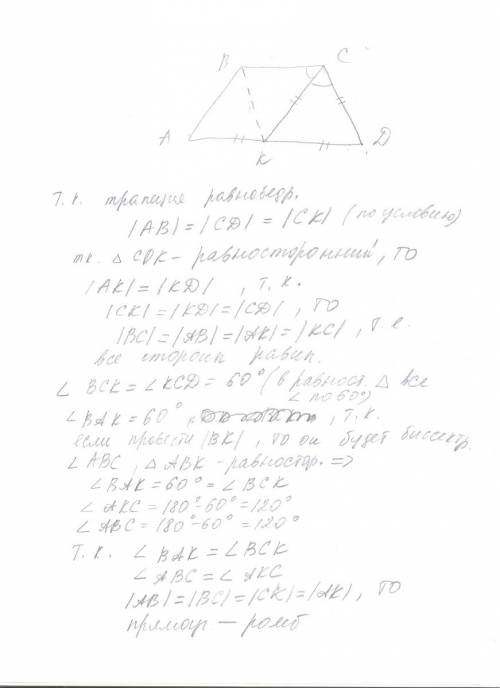 B C
A K D
Т.к. трапеция равнобедр.
|AB| = |CD| = |CK| (по условию)
т.к. △ CDK - равносторонний, то
|AK| = |KD| , т.к.
|CK| = |KD| = |CD| , то
|BC| = |AB| = |AK| = |KC| , т.е.
все стороны равны.
∠ BCK = ∠KCD = 60° (в равност. △ все
∠ по 60°)
∠ BAK = 60° , т.к.
если провести |BK| , то он будет биссектр.
∠ ABC , △ ABK - равностор. =>
∠ BAK = 60° = ∠ BCK
∠ AKC = 180°-60° = 120°
∠ ABC = 180°-60° = 120°
Т.к. ∠ BAK = ∠BCK
∠ ABC = ∠ AKC
|AB| = |BC| = |CK| = |AK| , то
прямоуг — ромб